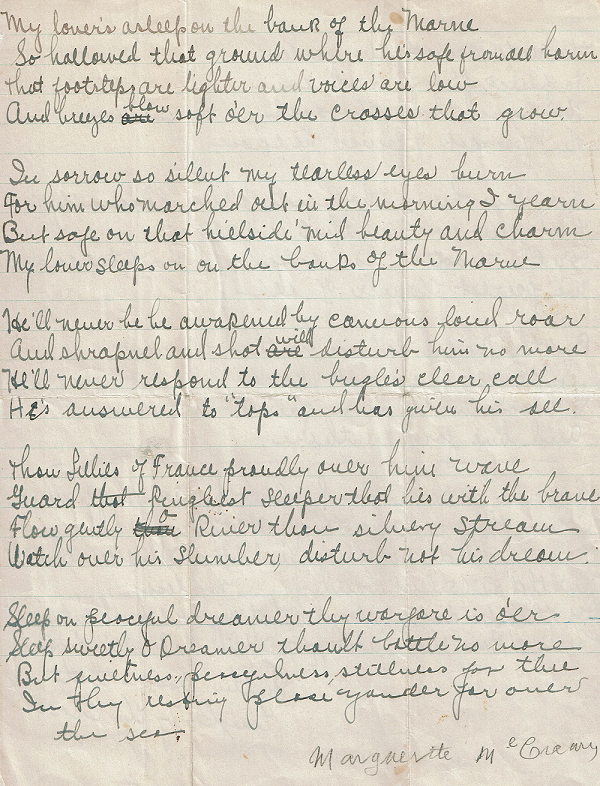 My lover's asleep on the bank of the Marne
So hallowed that ground where he's safe from all harm
that footsteps are lighter and voices are low
And breezes are blow soft o'er the crosses that grow.
In sorrow so silent my tearless eyes burn
For him who marched out in the morning I yearn
But safe on that hillside 'mid beauty and charm
My lover sleeps on on the banks of the Marne
He'll never be be awakened by cannons loud roar
And shrapnel and shot are will disturb him no more
He'll never respond to the bugle's clear call
He's answered to "taps" and has given his all.
Thou Lillies of France proudly over him wave
Guard that sleeper that lies with the brave
Flow gently O River thou silvery Stream
Watch over his slumber, disturb not his dream.
Sleep on peaceful dreamer thy warfare is o'er
Sleep sweetly O Dreamer thoult battle no more
But quietness, peacefulness, stillness for thee
In thy resting place yonder far over
the sea.
Marguerite McCreary